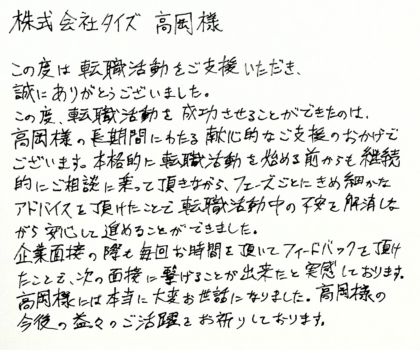 株式会社タイズ 高岡様
この度は転職活動をご支援いただき、
誠にありがとうございました。
この度、転職活動を成功させることができたのは、
高岡様の長期間にわたる献心的なご支援のおかげで
ございます。本格的に転職活動を始める前からも継続
的にご相談に乗って頂きながら、フェーズごとにきめ細かな
アドバイスを頂けたことで転職活動中の不安を解消しな
がら安心して進めることができました。
企業面接の際も毎回お時間を頂いてフィードバックを頂け
たことで、次の面接に繋げることが出来たと実感しております。
高岡様には本当に大変お世話になりました。高岡様の
今後の益々のご活躍をお祈りしております。